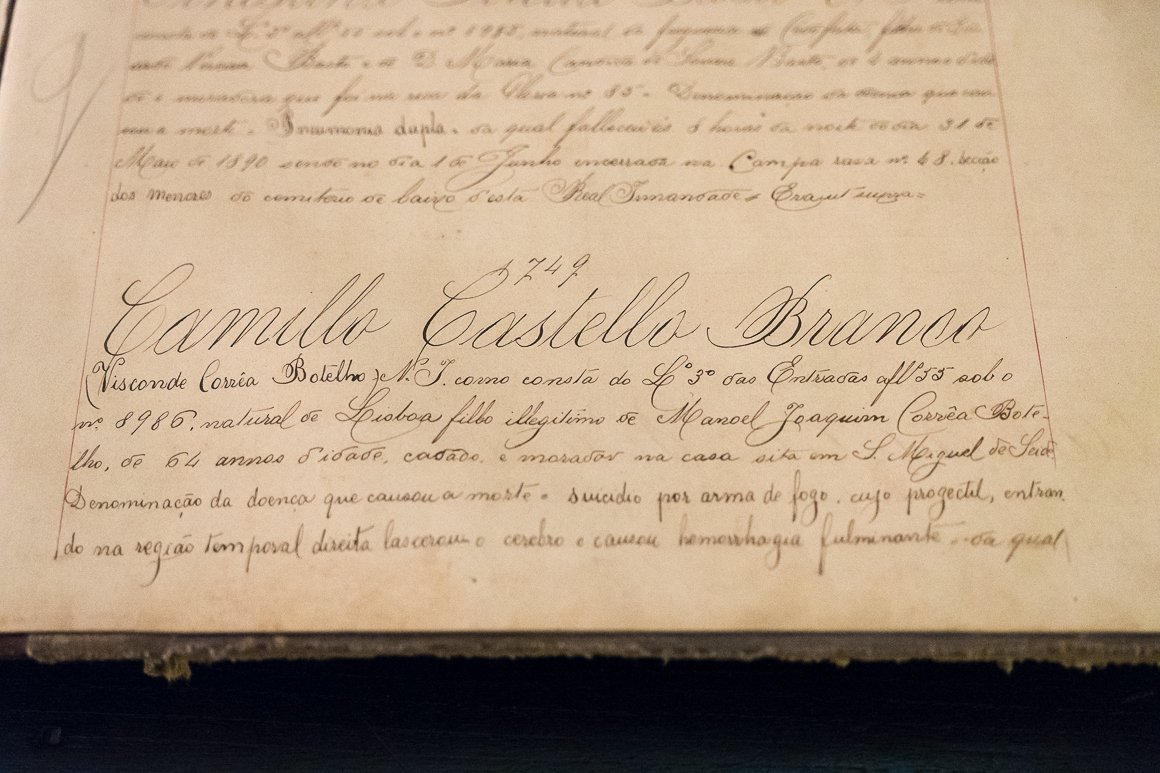 nº 8985, natural da freguesia de
de D. Maria
de e moradora que foi na rua da nº 85 - Denominação da doença que cau
sou a morte - Pneumonia dupla - da qual falleceu ás 8 horas da noite do dia 31 de
Maio de 1890 sendo no dia 1 de Junho encerrada na Campa rasa nº 48, secção
dos menores do cemiterio de baixo d'esta Real Irmandade
1749
Camillo Castello Branco
(Visconde Corrêa Botelho) N. T. como consta do Lº 3º das Entradas a fls 55 sob o
nº 8986, natural de Lisboa filho illegitimo de Manoel Joaquim Corrêa Bote-
lho, de 64 annos d'idade, casado, e morador na casa sita em S. Miguel de Seide
Denominação da doença que causou a morte - suicidio por arma de fogo, cujo progectil, entran
do na região temporal direita lascerou o cerebro e causou hemorrhagia fulminante - da qual